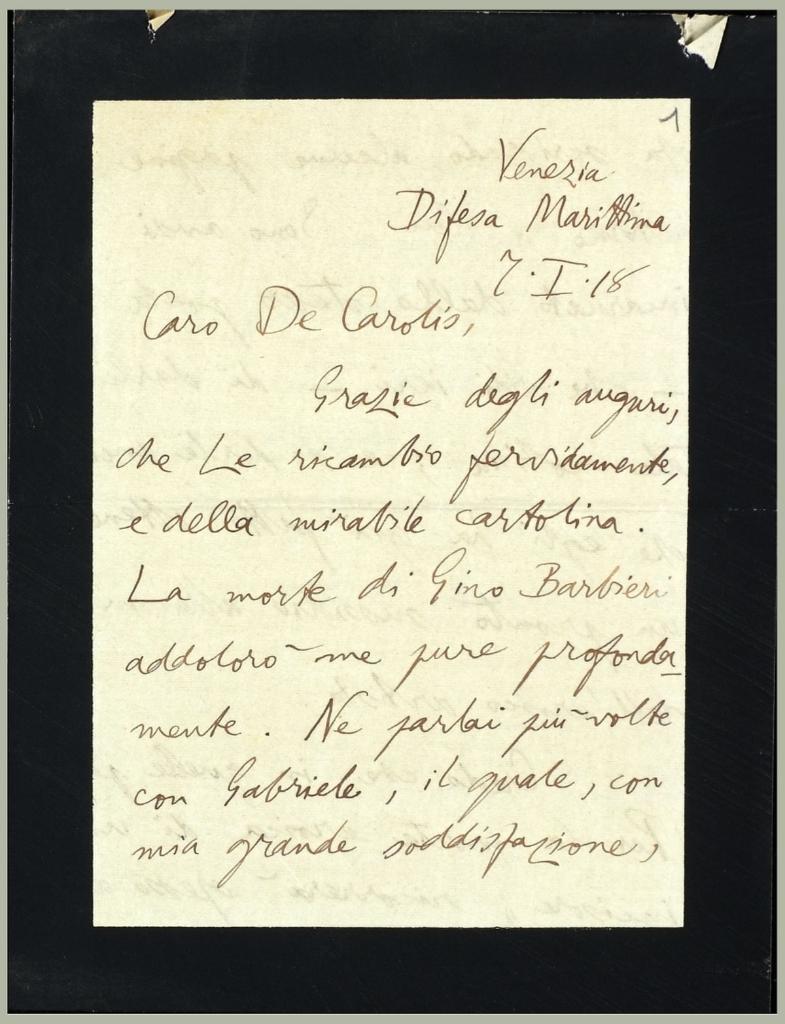 1
Venezia
Difesa Marittima
7.I.18
Caro De Carolis,
Grazie degli auguri,
che Le ricambio fervidamente,
e della mirabile cartolina.
La morte di Gino Barbieri
addolorò me pure profonda-
mente. Ne parlai più volte
con Gabriele, il quale, con
mia grande soddisfazione,